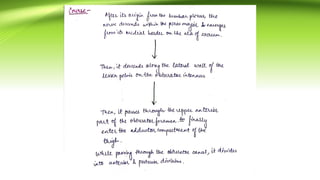 Course-
After its origin from the lumbar plexus the
nerve descends within the psoas major & emerges
from its medial border on the ala of sacrum.
Then, it descends along the lateral wall of the
lesser pelvis on the obturator internus
Then, it passes through the upper anterior
part of the obturator foramen to finally
enter the adductor compartment of the
thigh.
While passing through the obturator canal, it divides
into anterior & posterior divisions.